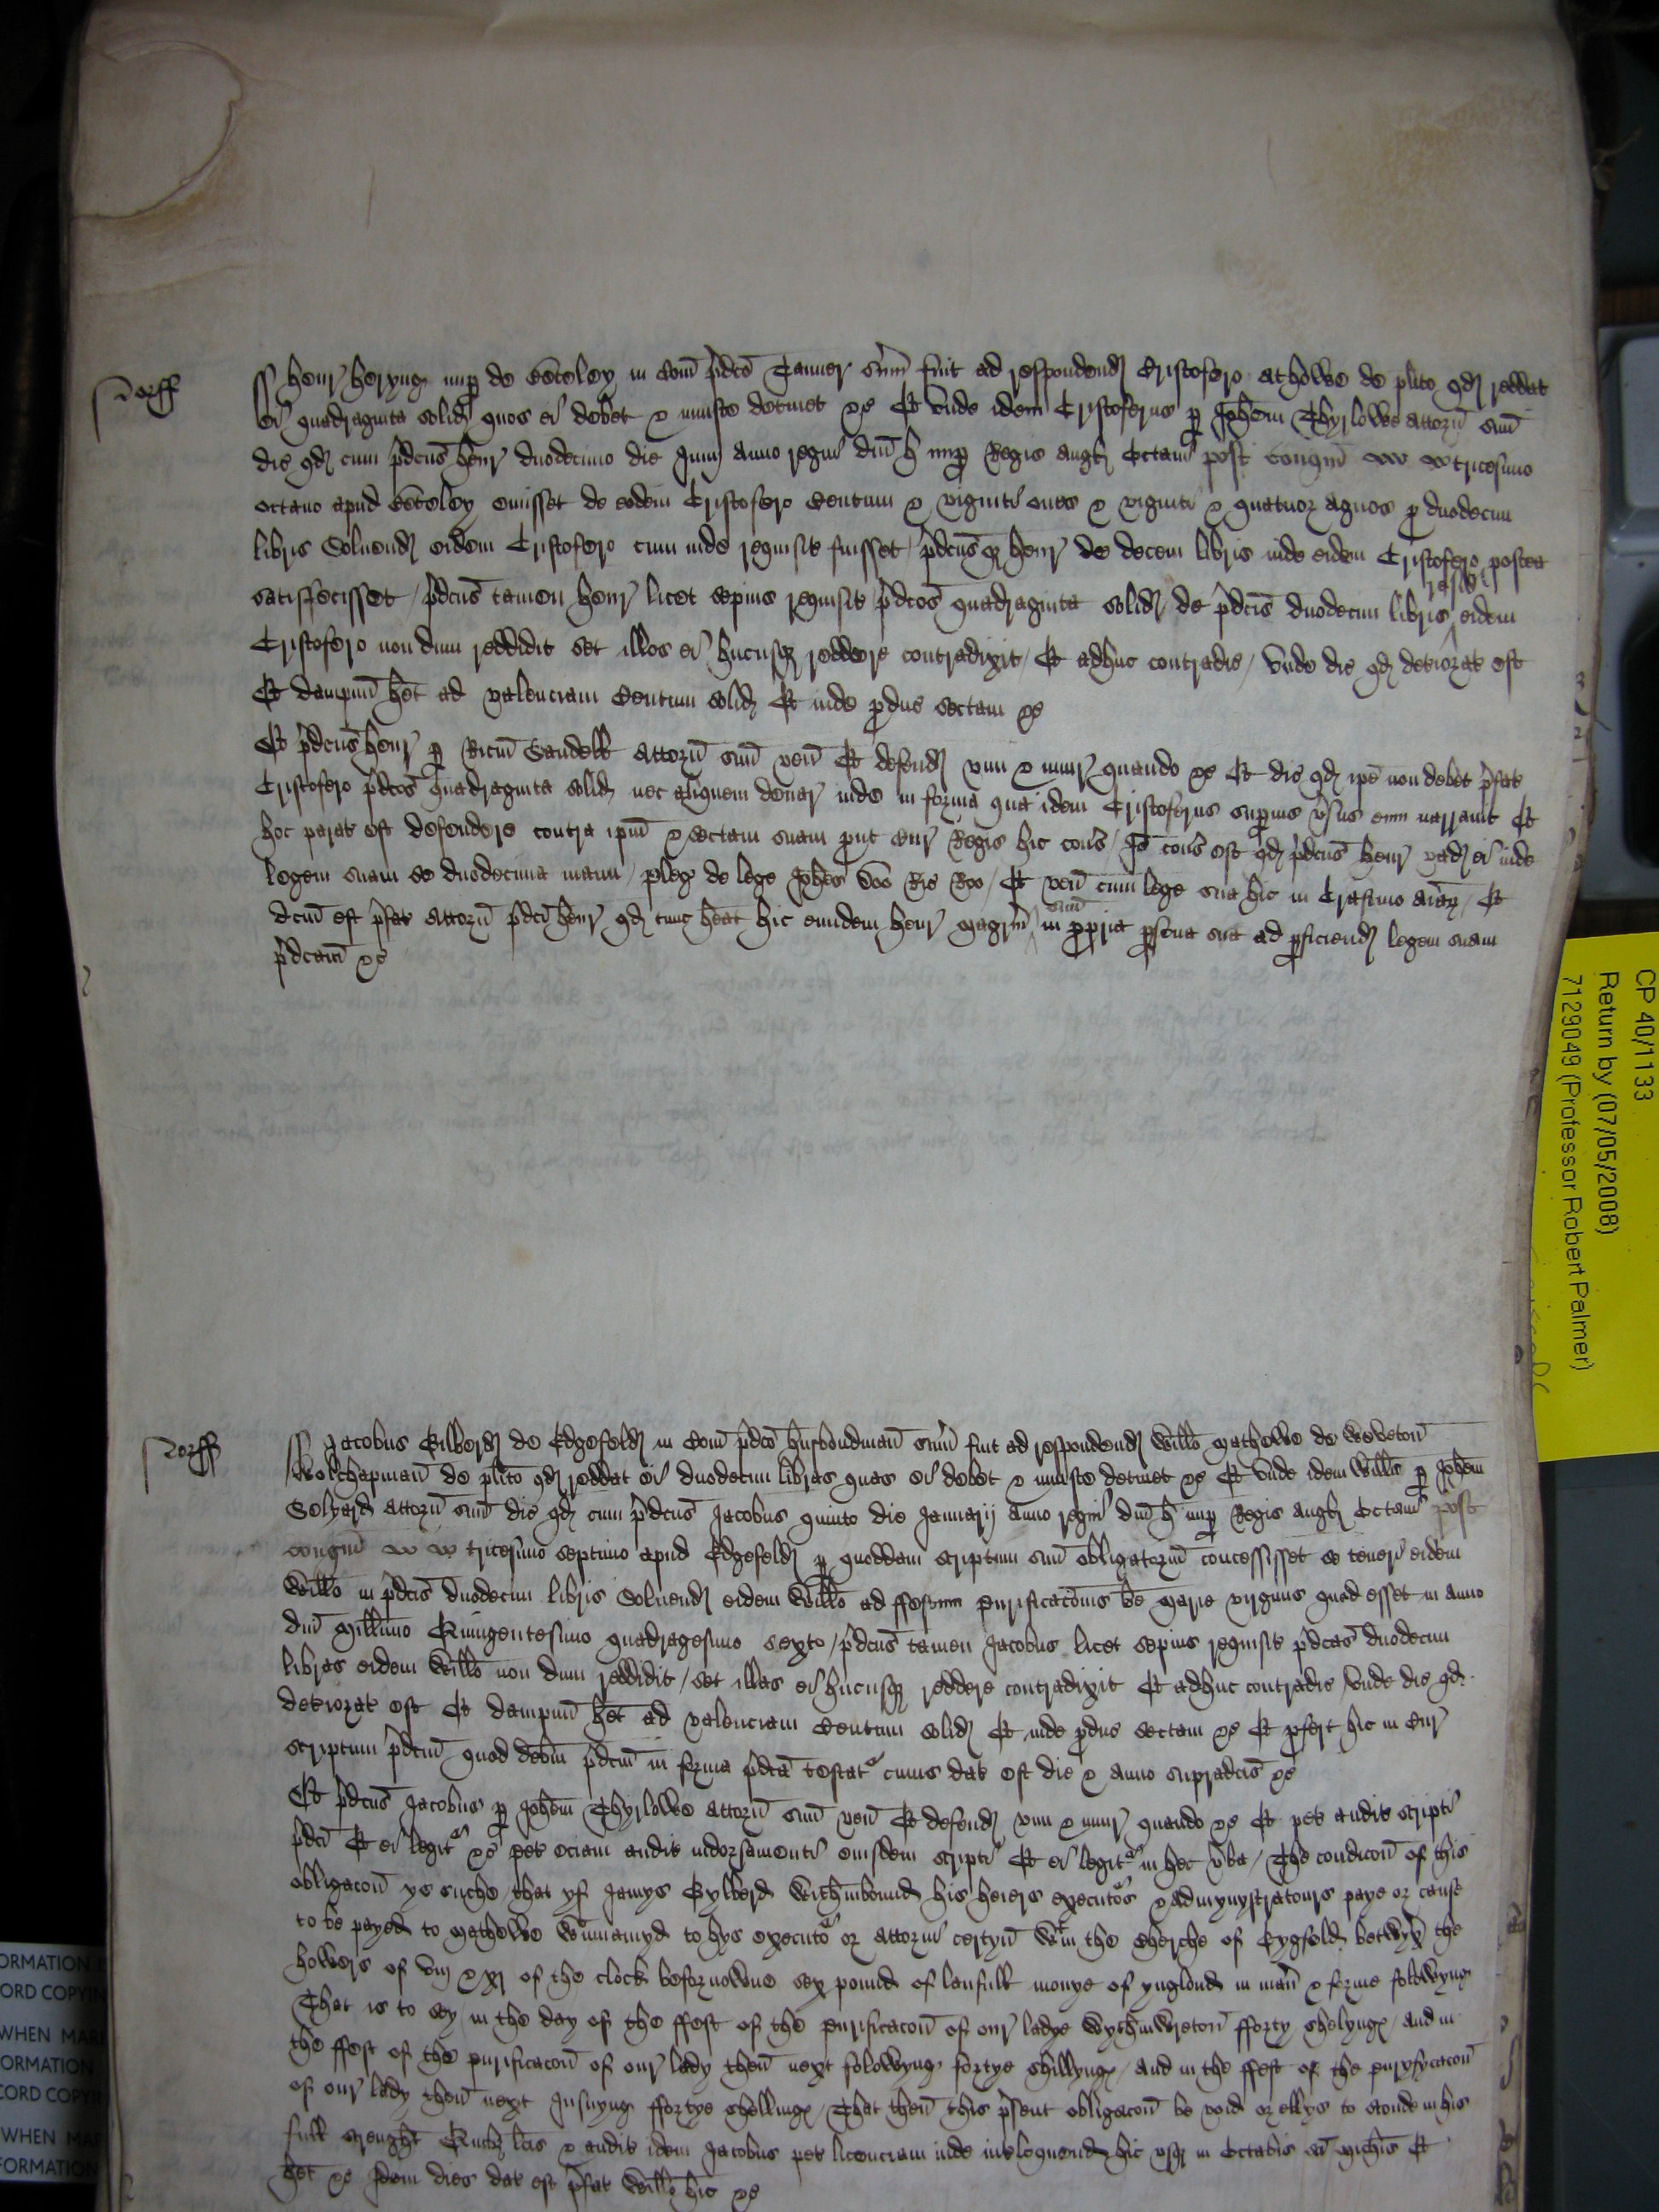 Norff
ss Henr Heryng nup de Beteley in Com pdco Tanner sum fuit ad respondend Cristofero Athowe de plito qd reddat
ei quadraginta solid quos ei debet & iniuste detinet &c Et unde idem Cristoferus p Johem Thyrlowe attorn suu
dic qd cum pdcus Henr duodecimo die Junij anno regni dni H nup Regis Angl Octavi post conqm tricesimo
octavo apud emisset de eodem Cristofero Centum & viginti oves & viginti & quatuor agnos p duodecim
libris Solvend eidem Cristofero cum inde requisit fuisset / pdcusq Henr de decem libris inde eidem Cristofero postea
satisfecisset / pdcus tamen Henr licet sepius requisit pdcos quadraginta solid de pdcis duodecim libris resid eidem
Cristofero non dum reddidit set illos ei hucusq reddere contradixit / Et adhuc contradic / Unde dic qd deteriorat est
Et dampnu het ad valenciam Centum solid Et inde pduc sectam &c
Et pdcus Henr p Ricm attorn suu ven Et defend vim & iniur quando &c Et dic qd ipe non debet pfat
Cristofero pdcos quadraginta solid nec aliquem denar inde in forma qua idem Cristoferus supius vsus eum narravit Et
hoc parat est defendere contra ipm & sectam suam put Cur Regis hic cons / Io cons est qd pdcus Henr vad ei inde
legem suam se duodecima manu / pleg de lege Johes Doo Ric Roo / Et ven cum lege sua hic in Crastino aiar / Et
dcm est pfat attorn pdci Henr qd tunc heat hic eundem Henr magrm suu in ppria psona sua ad pficiend legem suam
pdcam &c
Norff
ss Jacobus Gilberd de Edgefeld in Com pdco husbondman sum fuit ad respondend Willo Mathewe de
Wolchapman de plito qd reddat ei duodecim libras quas ei debet & iniuste detinet &c Et unde idem Wills p Johem
attorn suu dic qd cum pdcus Jacobus quinto die Januarij anno regni dni H nup Regis Angl Octavi post
conqm tricesimo septimo apud Edgefeld p quoddam scriptum suu obligatoriu concessisset se teneri eidem
Willo in pdcis duodecim libris Solvend eidem Willo ad ffestum Purificacois be Marie virginis quod esset in anno
dni Millimo Quingentesimo quadragesimo sexto / pdcus tamen Jacobus licet sepius requisit pdcas duodecim
libras eidem Willo non dum reddidit / set illas ei hucusq reddere contradixit Et adhuc contradic / Unde dic qd
deteriorat est Et dampnu het ad valenciam Centum solid Et inde pduc sectam &c Et pfert hic in Cur
scriptum pdcm quod debm pdcm in forma pdca testat cuius dat est die & anno supradcis &c
Et pdcus Jacobus p Johem Thyrlowe attorn suu ven Et defend vim & iniur quando &c Et pet audit scripti
pdci Et ei legit &c pet eciam audit indorsamenti eiusdem scripti Et ei legit in hec vba / The condicon of this
obligacon ys suche / that yf Jamys Gylberd withinbound his heiers executos & admynystratours paye or cause
to be payed to Mathewe wnnamyd to hys executo or attorn certyn wtin the Cherche of Eygfeld betwyx the
howers of viij & xj of the clock befornowne sex pound of laufull monye of ynglond in man & forme folowyng
That is to sey / in the day of the ffest of the purificacon of our ladye wythinwreton fforty shelyng / and in
the ffest of the purificacon of our lady then next folowyng fortye shillyng / And in the ffest of the puryfycacon
of our lady then next Insuyng fforty shelling / That then this psent obligacon be void or ellys to stonde in his
full strenght Quibz lcis & audit idem Jacobus pet licenciam inde inloquend hic usq in Octabis sci Michis Et
het &c Idem dies dat est pfat Willo hic &c
CP 40/1133
Return by (07/05/2008)
7129049 (Professor Robert Palmer)